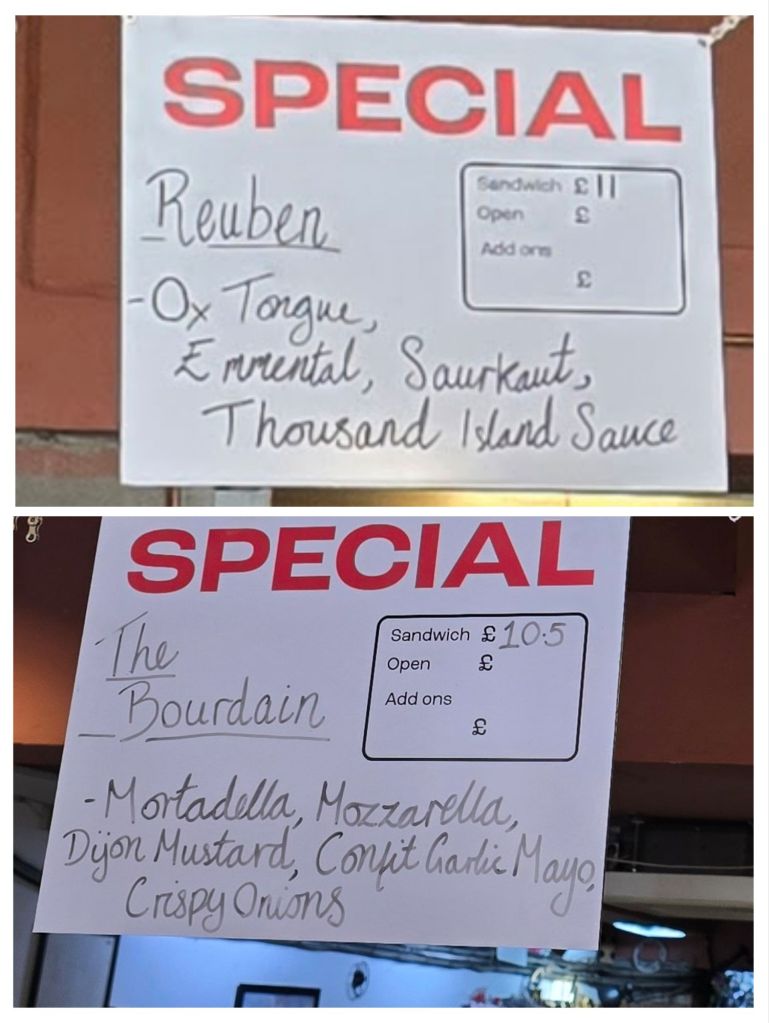 SPECIAL
Reuben
Sandwich £11
Open £
Add ons
£
-Ox Tongue,
Emmental, Saurkaut,
Thousand Island Sauce
SPECIAL
The
Bourdain
Sandwich £10.5
Open £
Add ons
£
-Mortadella, Mozzarella,
Dijon Mustard, Confit Garlic Mayo,
Crispy Onions